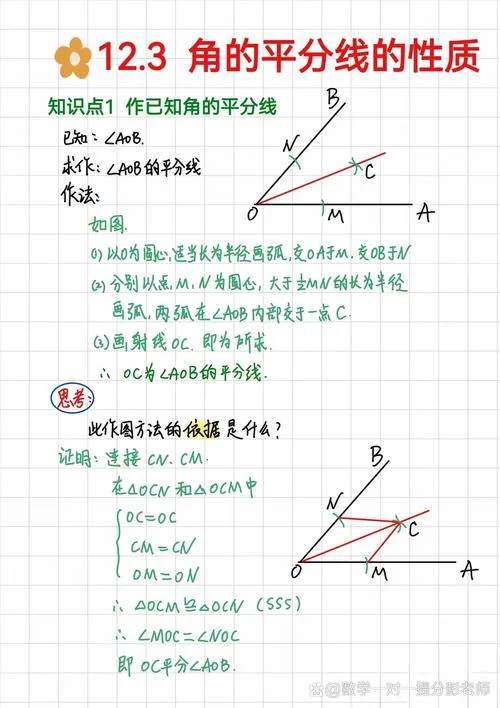 12.3 角的平分线的性质
知识点1 作已知角的平分线
已知:∠AOB.
求作:∠AOB的平分线
作法:
B
N
C
O
M
A
如图.
(1) 以O为圆心,适当长为半径画弧,交OA于M,交OB于N
(2) 分别以点,M,N为圆心,大于½MN的长为半径
画弧,两弧在∠AOB内部交于一点C.
(3)画射线OC.即为所求.
∴ OC为∠AOB的平分线.
思考:
此作图方法的依据是什么?
证明:连接CN、CM.
在△OCN和△OCM中
OC=OC
CM=CN
OM=ON
∴ △OCM≌△OCN (SSS)
∴ ∠MOC=∠NOC
即 OC平分∠AOB.
B
N
C
O
M
A
@数学一对一提分彭老师